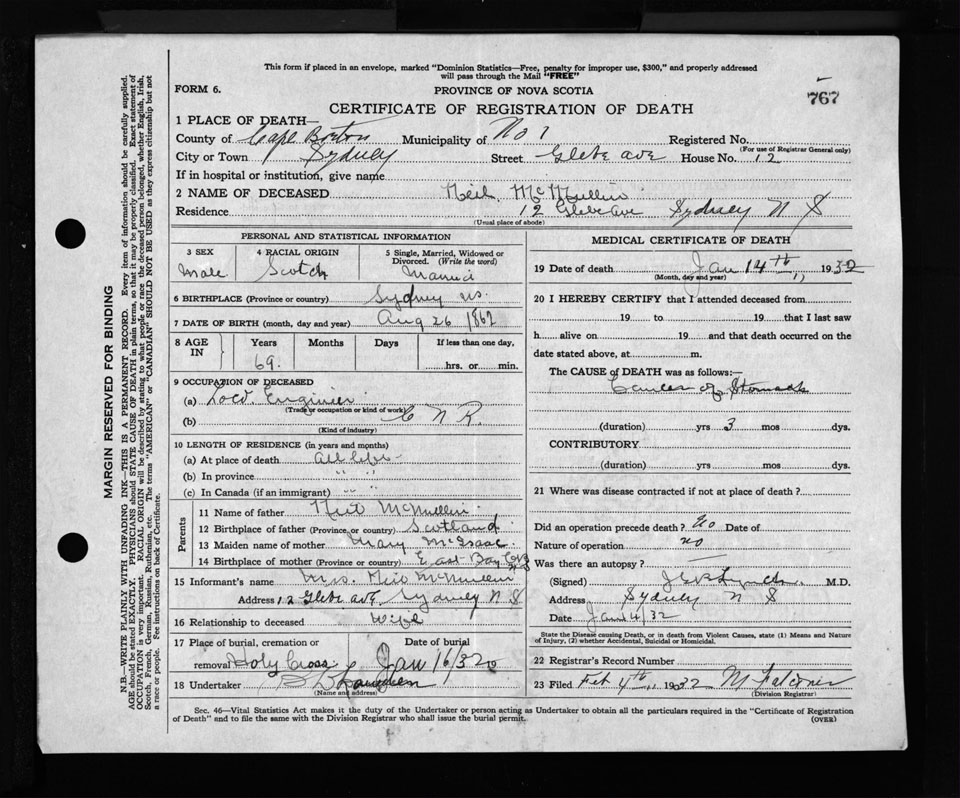 This form if placed in an envelope, marked "Dominion Statistics—Free, penalty for improper use, $300," and properly addressed
will pass through the Mail "FREE"
FORM 6.
PROVINCE OF NOVA SCOTIA
767
CERTIFICATE OF REGISTRATION OF DEATH
1 PLACE OF DEATH—
County of Cape Breton Municipality of No 1 Registered No.
(For use of Registrar General only)
City or Town Sydney Street Glebe Ave House No. 12
If in hospital or institution, give name
2 NAME OF DECEASED Neil McMullin
Residence 12 Glebe Ave Sydney N S
(Usual place of abode)
PERSONAL AND STATISTICAL INFORMATION
3 SEX
Male
4 RACIAL ORIGIN
Scotch
5 Single, Married, Widowed or
Divorced. (Write the word)
Married
6 BIRTHPLACE (Province or country) Sydney NS.
7 DATE OF BIRTH (month, day and year) Aug 26 1862
8 AGE IN
Years Months Days If less than one day,
69. hrs. or min.
9 OCCUPATION OF DECEASED
(a) Loco. Engineer
(Trade or occupation or kind of work)
(b) C N R.
(Kind of industry)
10 LENGTH OF RESIDENCE (in years and months)
(a) At place of death All life
(b) In province " "
(c) In Canada (if an immigrant) " "
Parents
11 Name of father Neil McMullin
12 Birthplace of father (Province or country) Scotland
13 Maiden name of mother Mary McIsaac
14 Birthplace of mother (Province or country) East Bay CB NS
15 Informant's name Mrs. Neil McMullin
Address 12 Glebe Ave Sydney N S
16 Relationship to deceased Wife
17 Place of burial, cremation or
removal Holy Cross
Date of burial
Jan 16/32
18 Undertaker
(Name and address)
MEDICAL CERTIFICATE OF DEATH
19 Date of death Jan 14th 1932
(Month, day and year)
20 I HEREBY CERTIFY that I attended deceased from
19 to 19 that I last saw
h alive on 19 and that death occurred on the
date stated above, at m.
The CAUSE OF DEATH was as follows:—
Cancer of Stomach
(duration) yrs 3 mos dys.
CONTRIBUTORY
(duration) yrs mos dys.
21 Where was disease contracted if not at place of death?
Did an operation precede death? No Date of
Nature of operation no
Was there an autopsy? —
(Signed) Lynch M.D.
Address Sydney N S
Date
State the Disease causing Death, or in death from Violent Causes, state (1) Means and Nature
of Injury, (2) whether Accidental, Suicidal or Homicidal.
22 Registrar's Record Number
23 Filed Feb 4th 1932 M Falconer
(Division Registrar)
Sec. 46—Vital Statistics Act makes it the duty of the Undertaker or person acting as Undertaker to obtain all the particulars required in the "Certificate of Registration
of Death" and to file the same with the Division Registrar who shall issue the burial permit.
(OVER)
MARGIN RESERVED FOR BINDING
N.B.—WRITE PLAINLY WITH UNFADING INK—THIS IS A PERMANENT RECORD. Every item of information should be carefully supplied.
AGE should be stated EXACTLY. PHYSICIANS should STATE CAUSE OF DEATH in plain terms, so that it may be properly classified. Exact statement of
OCCUPATION is very important. RACIAL ORIGIN will be described by stating to what people or race the deceased person belonged, whether English, Irish,
Scotch, French, German, Russian, Ruthenian, etc. The terms "AMERICAN" or "CANADIAN" SHOULD NOT BE USED as they express citizenship but not
a race or people. Fee instructions on back of Certificate.